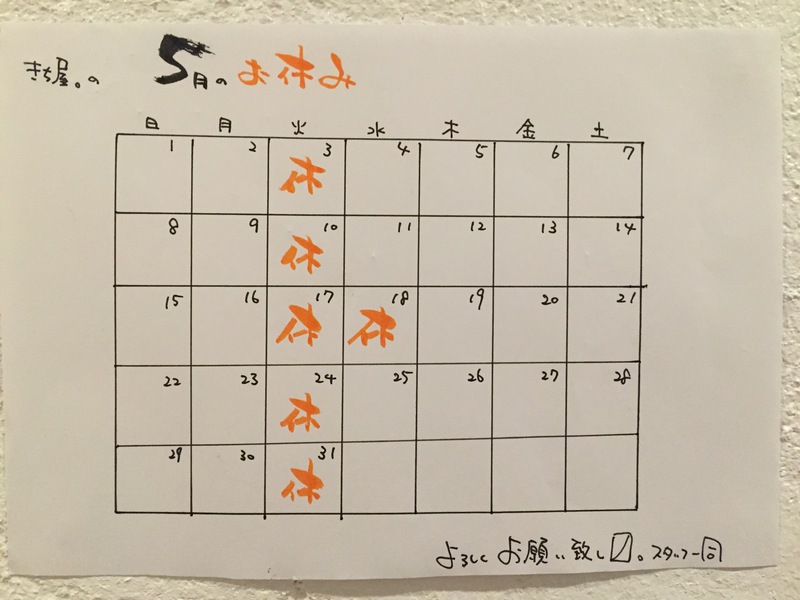 きち屋。の 5月のお休み
日 月 火 水 木 金 土
1 2 3 4 5 6 7
休
8 9 10 11 12 13 14
休
15 16 17 18 19 20 21
休 休
22 23 24 25 26 27 28
休
29 30 31
休
よろしくお願い致し〼。スタッフ一同